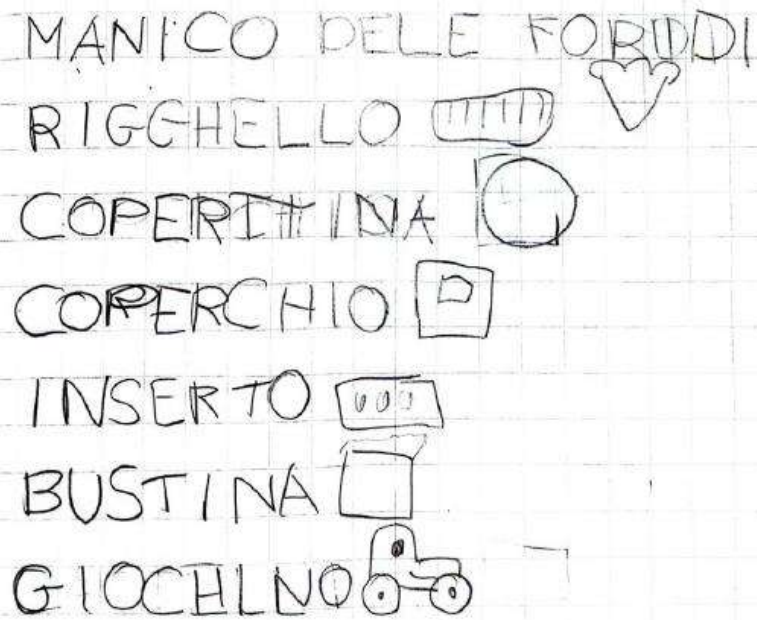 MANICO DELE FORBDI
RIGGHELLO
COPERTTINA
COPERCHIO
INSERTO
BUSTINA
GIOCHINO